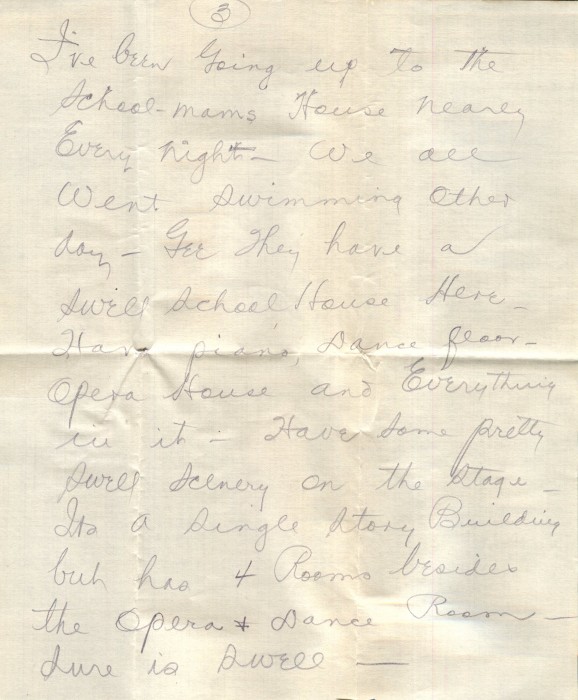 3
I've been Going up to the
School-mams House nearly
Every night - We all
Went Swimming Other
day - Gee They have a
Swell School House Here -
Have piano, Dance floor -
Opera House and Everything
in it - Have Some pretty
Swell Scenery on the Stage -
Its a Single Story Building
but has 4 Rooms besides
the Opera & Dance Room -
Sure is Swell -